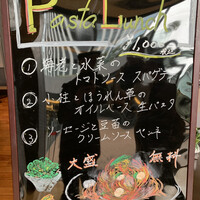 Pasta Lunch
¥1,00
① 海老と水菜の
トマトソース スパゲティ
② 小柱とほうれん草の
オイルベース 生パスタ
③ ソーセージと豆苗の
クリームソース ペンネ
大盛 無料